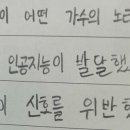 이 어떤 가수의 노래
인공지능이 발달했
이 신호를 위반했